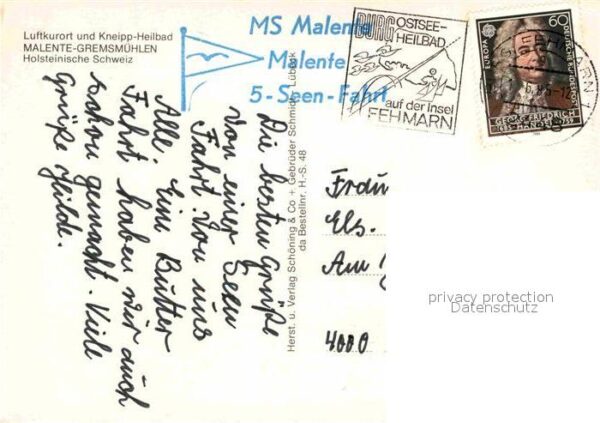 Luftkurort und Kneipp-Heilbad
MALENTE-GREMSMÜHLEN
Holsteinische Schweiz
MS Malente
Malente
5-Seen-Fahrt
BURG OSTSEE-
HEILBAD
auf der Insel
FEHMARN
60
EUROPA
DEUTSCHE BUNDESPOST
GEORG FRIEDRICH
HÄNDEL
Die besten Grüße
von einer Seen
Fahrt. Von uns
Alle. Eine Butter
Fahrt haben wir auch
schon gemacht. Viele
Grüße Hilde.
Herst. u. Verlag Schöning & Co + Gebrüder Schmidt, Lübeck
da Bestellnr. H.-S. 48
Frau
Els.
Am
4000
privacy protection
Datenschutz